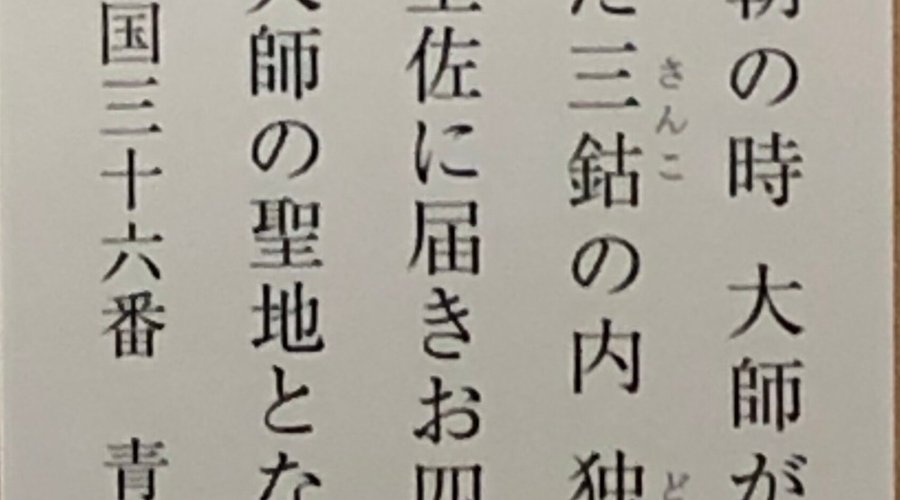 朝の時 大師が
た三鈷の内 独
さんこ
土佐に届きお四
大師の聖地とな
国三十六番 青